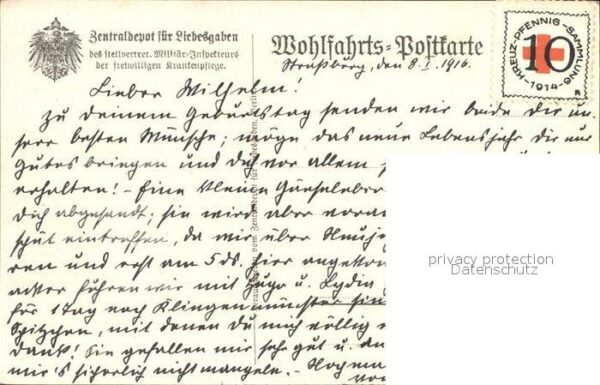 Zentraldepot für Liebesgaben
des stellvertret. Militär-Inspekteurs
der freiwilligen Krankenpflege.
Wohlfahrts-Postkarte
KREUZ-PFENNIG-SAMMLUNG
10
1914-
Straßburg, den 8. I. 1916.
Lieber Wilhelm!
Zu deinem Geburtstag senden wir beide dir un-
sere besten Wünsche; möge das neue Lebensjahr dir nur
Gutes bringen und dich vor allem
erhalten! - Eine kleine Gänseleber
dich abgesandt; sie wird aber voraus
eintreffen, da wir über Neuja
ren und erst am 5. ds. hier angekom
fuhren wir mit Hugo u. Lydia
für 1 Tag nach Klingenmünster
Spitzchen, mit denen du mich völlig
dank! Sie gefallen mir sehr gut u.
mir's sicherlich nicht mangeln. - Noch
privacy protection
Datenschutz